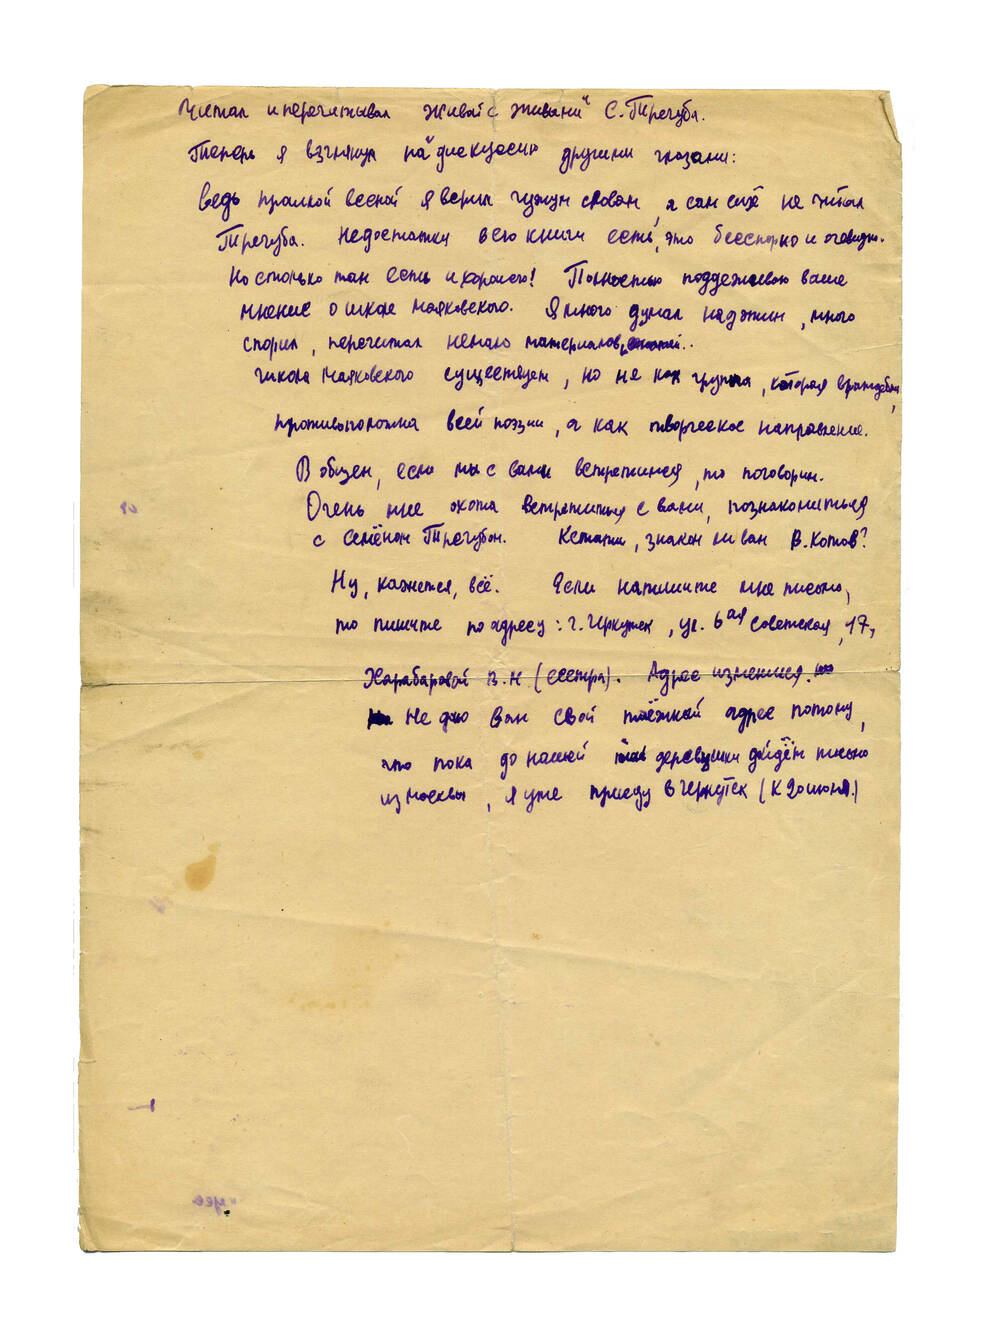 Читал и перечитывал "Живой с живыми" С. Трегуба.
Теперь я взглянул на "дискуссию" другими глазами:
Ведь прошлой весной я верил чужим словам, а сам ещё не читал
Трегуба. Недостатки в его книги есть, это бесспорно и очевидно.
Но столько там есть и хорошего! Полностью поддерживаю ваше
мнение о школе Маяковского. Я много думал над этим, много
спорил, перечитал немало материалов, статей..
Школа Маяковского существует, но не как группа, которая враждебна,
противоположна всей поэзии, а как творческое направление.
В общем, если мы с вами встретимся, то поговорим.
Очень мне охота встретиться с вами, познакомиться
с Семёном Трегубом. Кстати, знаком ли вам В. Котов?
Ну, кажется, всё. Если напишите мне письмо,
то пишите по адресу: г. Иркутск, ул. 6ая Советская, 17,
Харабаровой В. Н (сестра). Адрес изменился.
Не даю вам свой таёжный адрес потому,
что пока до нашей деревушки дойдёт письмо
из Москвы, я уже приеду в Иркутск (к 20 июня.)